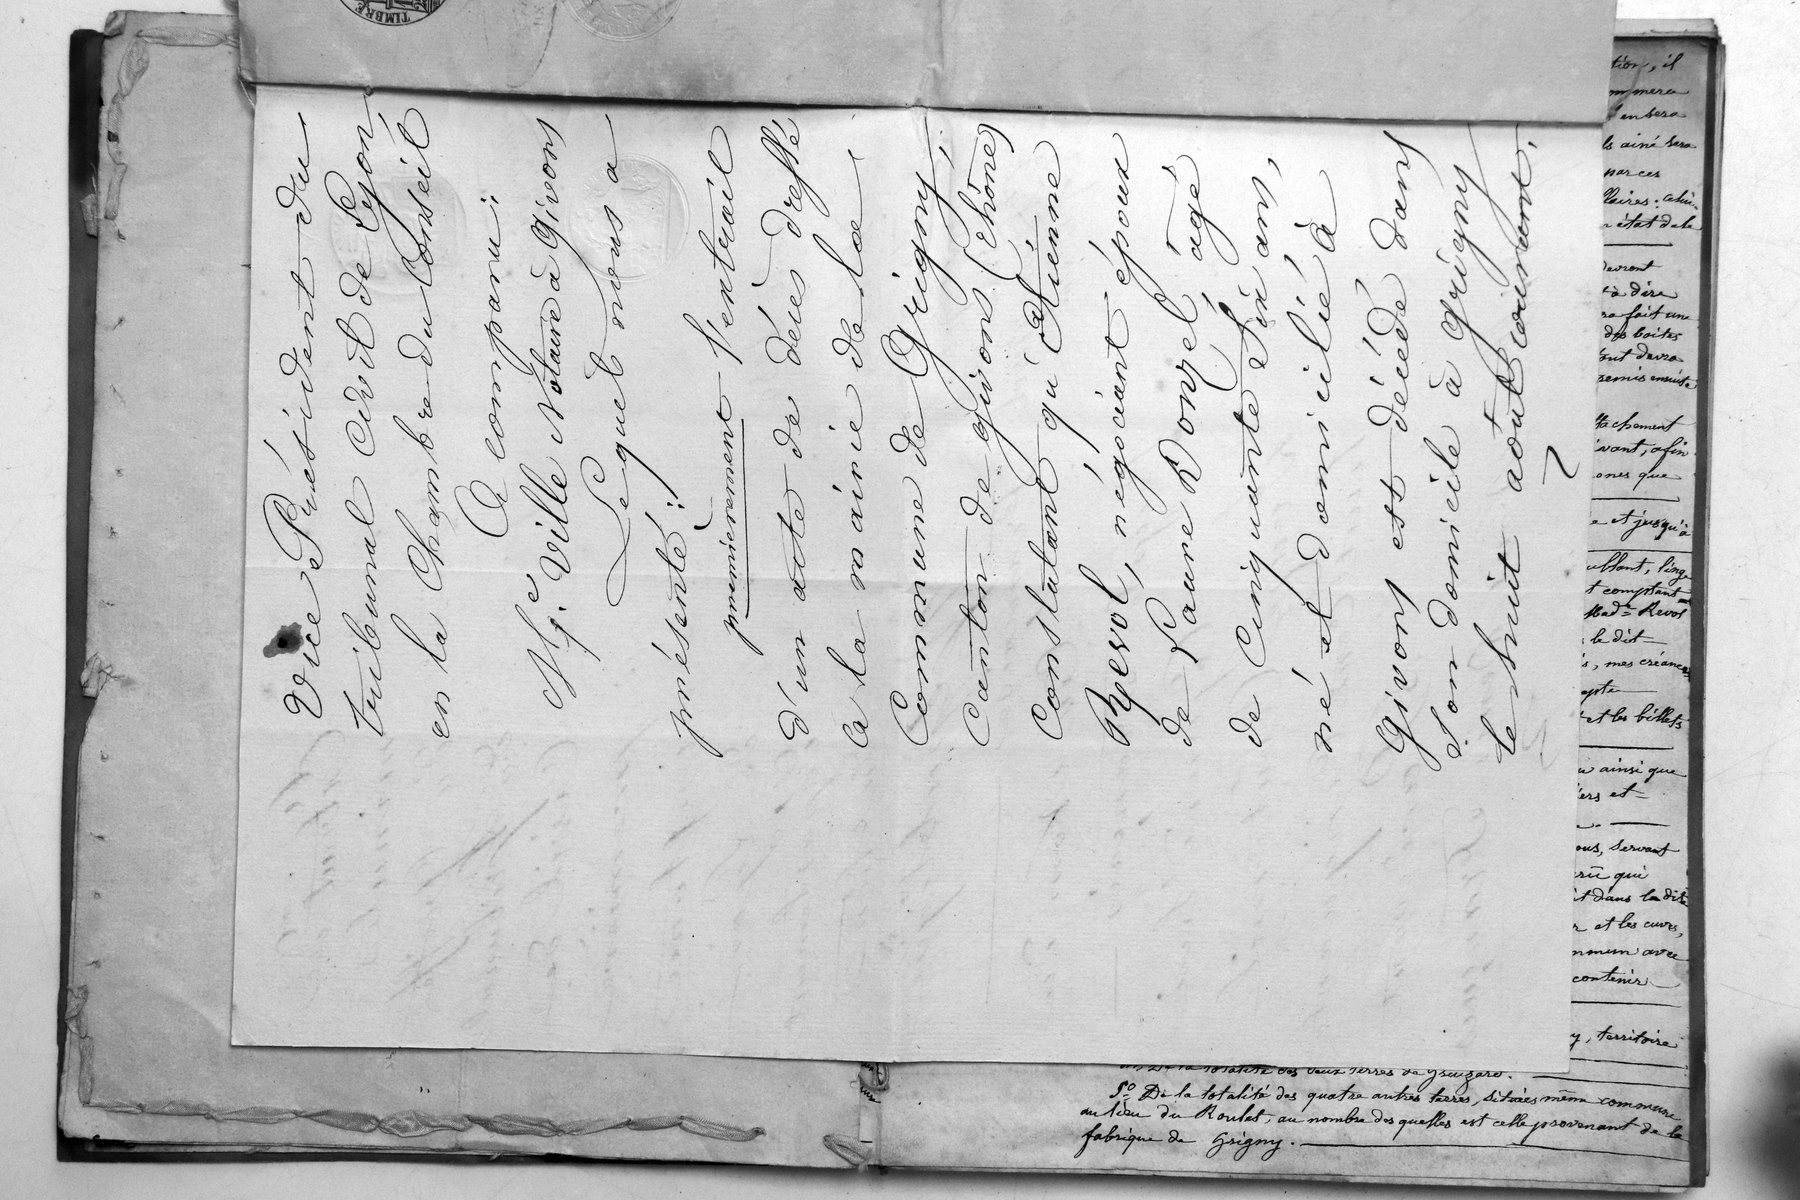 Vice Président du
tribunal Civil de Lyon
en la Chambre du Conseil
A comparu:
Me. Ville Notaire à Givors
Lequel nous a
présenté:
premièrement l'extrait
d'un acte de décès dressé
à la mairie de la
Commune de Grigny,
Canton de givors (Rhône)
Constatant qu'Etienne
Revol, négociant époux
de Laure Bonzel âgé
de Cinquante Six ans,
né et domicilié à
Givors est décédé dans
son domicile à grigny
le huit août courant.
TIMBRE
tion, il
mmera
en sera
ls ainé sera
par ces
état de la
devront
à dire
ra fait une
des boites
devra
remis ensuite
ttachement
ivant, afin
ones que
e et jusqu'à
ublant, linge
t comptant
Made Revol
le dit
s, mes créances
et les billets
ainsi que
ers et
ous, servant
qui
it dans la dite
r et les cuves,
mmun avec
contenir
y, territoire
la totalité des deux terres de
5º De la totalité des quatre autres terres, situées même commune
au lieu du Roulet, au nombre des quelles est celle provenant de la
fabrique de Grigny.